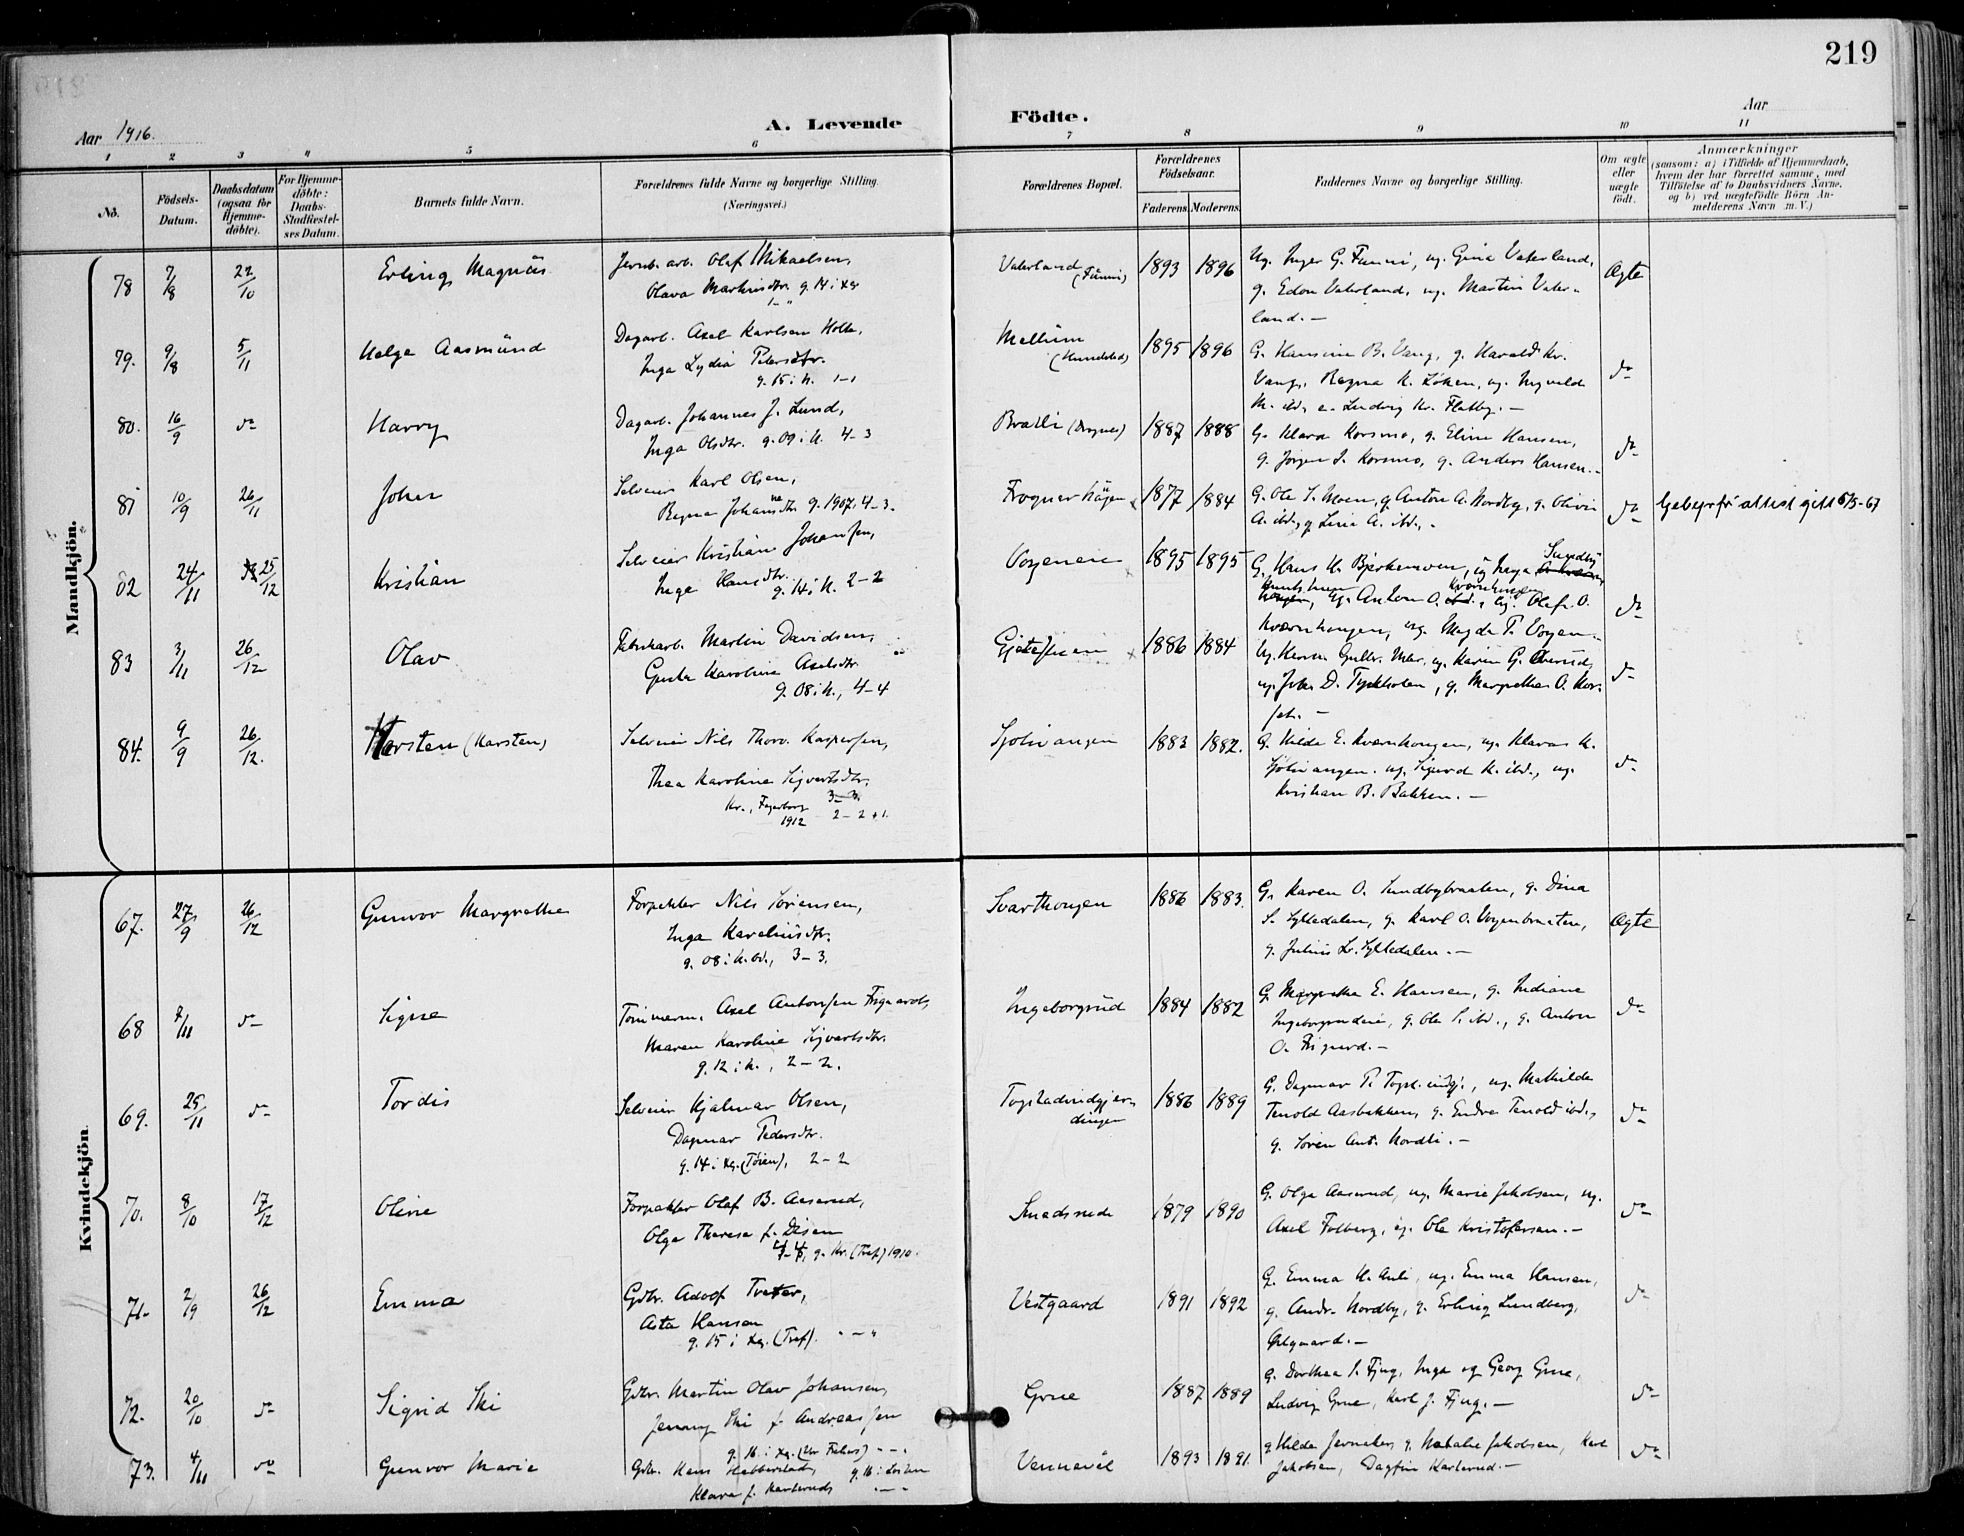 219
Aar 1916.
A. Levende Födte.
Aar
1 2 3 4 5 6 7 8 9 10 11
No.
Födsels-Datum.
Daabsdatum (ogsaa for Hjemme-döbte).
For Hjemme-döbte: Daabs-Stadfæstel-ses Datum.
Barnets fulde Navn.
Forældrenes fulde Navne og borgerlige Stilling. (Næringsvei.)
Forældrenes Bopæl.
Forældrenes Födselsaar.
Faderens. Moderens.
Faddernes Navne og borgerlige Stilling.
Om ægte eller uægte födt.
Anmærkninger (saasom: a) i Tilfælde af Hjemmedaab, hvem der har forrettet samme, med Tilföielse af to Daabsvidners Navne, og b) ved uægtefödte Börn An-melderens Navn m. V.)
Mandkjön.
78 7/8 22/10 Erling Magnus
Jernb. arb. Olaf Mikaelsen,
Olava Martinsdtr. g. 14 i Kg.
Vaterland
1893 1896
Ug. Inger G. Funni, ug. Gina Vaterland,
g. Edon Vaterland, ug. Martin Vater-
land. —
Ægte
79. 9/8 5/11 Helge Aasmund
Dagarb. Axel Karlsen Holte,
Inga Lydia Petersdtr.
g. 15 i K. 1-1
Mellum
1895 1896
G. Hansine B. Vang, g. Harald Kr.
Vang, Ragna K. Löken, ug. Ingvald
K. ibd., e. Ludvig Kr. Flatby. —
do
80. 16/9 do Harry
Dagarb. Johannes J. Lund,
Inga Olsdtr. g. 09 i K. 4-3
BraEli
1887 1888
G. Klara Korsmo, g. Eline Hansen,
g. Jörgen J. Korsmo, g. Anders Hansen. -
do
81 10/9 26/11 Johan
Selveier Karl Olsen,
Ragna Johansdtr. g. 1907, 4-3.
Frognerhaugen
1877 1884
G. Ole S. Moen, g. Anton A. Nordby, g. Olivia
A. ibd., g. Lina A. ibd. -
do
attest gitt 6/3-67
82 24/11 25/12 Kristian
Selveier Kristian Johansen,
Inga Hansdtr.
g. 14 i K. 2-2
Vogenein
1895 1895
G. Hans K. Bjerkenven, ug. Inga Sundby
ug. Anton O. Kværnhaugen, ug. Olaf O.
Kværnhaugen, ug. Magda P. Vogen.
do
83 3/11 26/12 Olav
Fabrikarb. Martin Davidsen,
Gusta Karoline Axelsdtr.
g. 08 i K., 4-4
1886 1884
ug. Karen G. Överud,
ug. Johs D. Tyskholen, g. Margrethe O. Kor-
do
84. 9/9 26/12. Karsten (Karsten)
Selveier Nils Thorv. Kaspersen,
Thea Karoline Sigvartsdtr.
Kr., Fagerborg 3-3.
1912 2-2+1.
Sjölivangen
1883 1882.
G. Hilda E. Kværnhaugen, ug. Klaras K.
Sjölivangen. ug. Sigurd K. ibd., ug.
Kristian B. Bakken. —
do
Kvindekjön.
67. 27/9 26/12 Gunvor Margrethe
Forpakter Nils Sörensen,
Inga Karelinsdtr.
g. 08 i K. bd., 3-3.
Svarthaugen
1886 1883.
G. Karen O. Sundbybraaten, g. Dina
S. Sylledalen, g. Karl O. Vogenbraaten,
g. Julius Kr. Sylledalen. —
Ægte
68 7/11 do Signe
Tömmerm. Axel Antonsen Frigaard,
Maren Karoline Sigvartsdtr.
g. 12 i K., 2-2.
Ingeborgrud
1884 1882
G. Margrethe E. Hansen, g. Indiane
Ingeborgruden, g. Ole P. ibd., g. Anton
O. Frigaard. —
do
69. 25/11 do Tordis
Selveier Hjalmar Olsen,
Dagmar Pedersdtr.
g. 14 i Kg. (Töien), 2-2
Togstadindgjer-
dingen
1886 1889
G. Dagmar P. Togst.indgj., ug. Mathilde
Tenold Aasbakken, g. Endre Tenold ibd.,
g. Sören Ant. Nordli. —
do
70. 8/10 17/12 Oline
Forpakter Olaf B. Aaserud,
Olga Theresa f. Disen
4-4, g. Kr. (Tref) 1910.
1879 1890
G. Olga Aaserud, ug. Marie Jakobsen, ug.
Axel Folberg, ug. Ole Kristofersen. —
do
71. 2/9 26/12 Emma
Gdbr. Adolf Tveter,
Asta Hansen
g. 15 i Kg. (Tref). " — "
Vestgaard
1891 1892
G. Emma K. Auli, ug. Emma Hansen,
g. Andr. Nordby, g. Erling Lundberg,
do
72. 20/10 do Sigrid Ski
Gdbr. Martin Olav Johansen,
Jenny Ski f. Andreassen
Grue
1887 1889
G. Dorthea S. Fjug, Inga og Georg Grue,
Ludvig Grue, Karl J. Fjug. —
do
73. 4/11 do Gunvor Marie
Gdbr. Hans Hebberstad, g. 16 i
Klara f. Karterud
Vennevöl
1893 1891
g. Hilda Jernaker, g. Natalie Jakobsen, Karl
Jakobsen, Dagfin Karterud. —
do